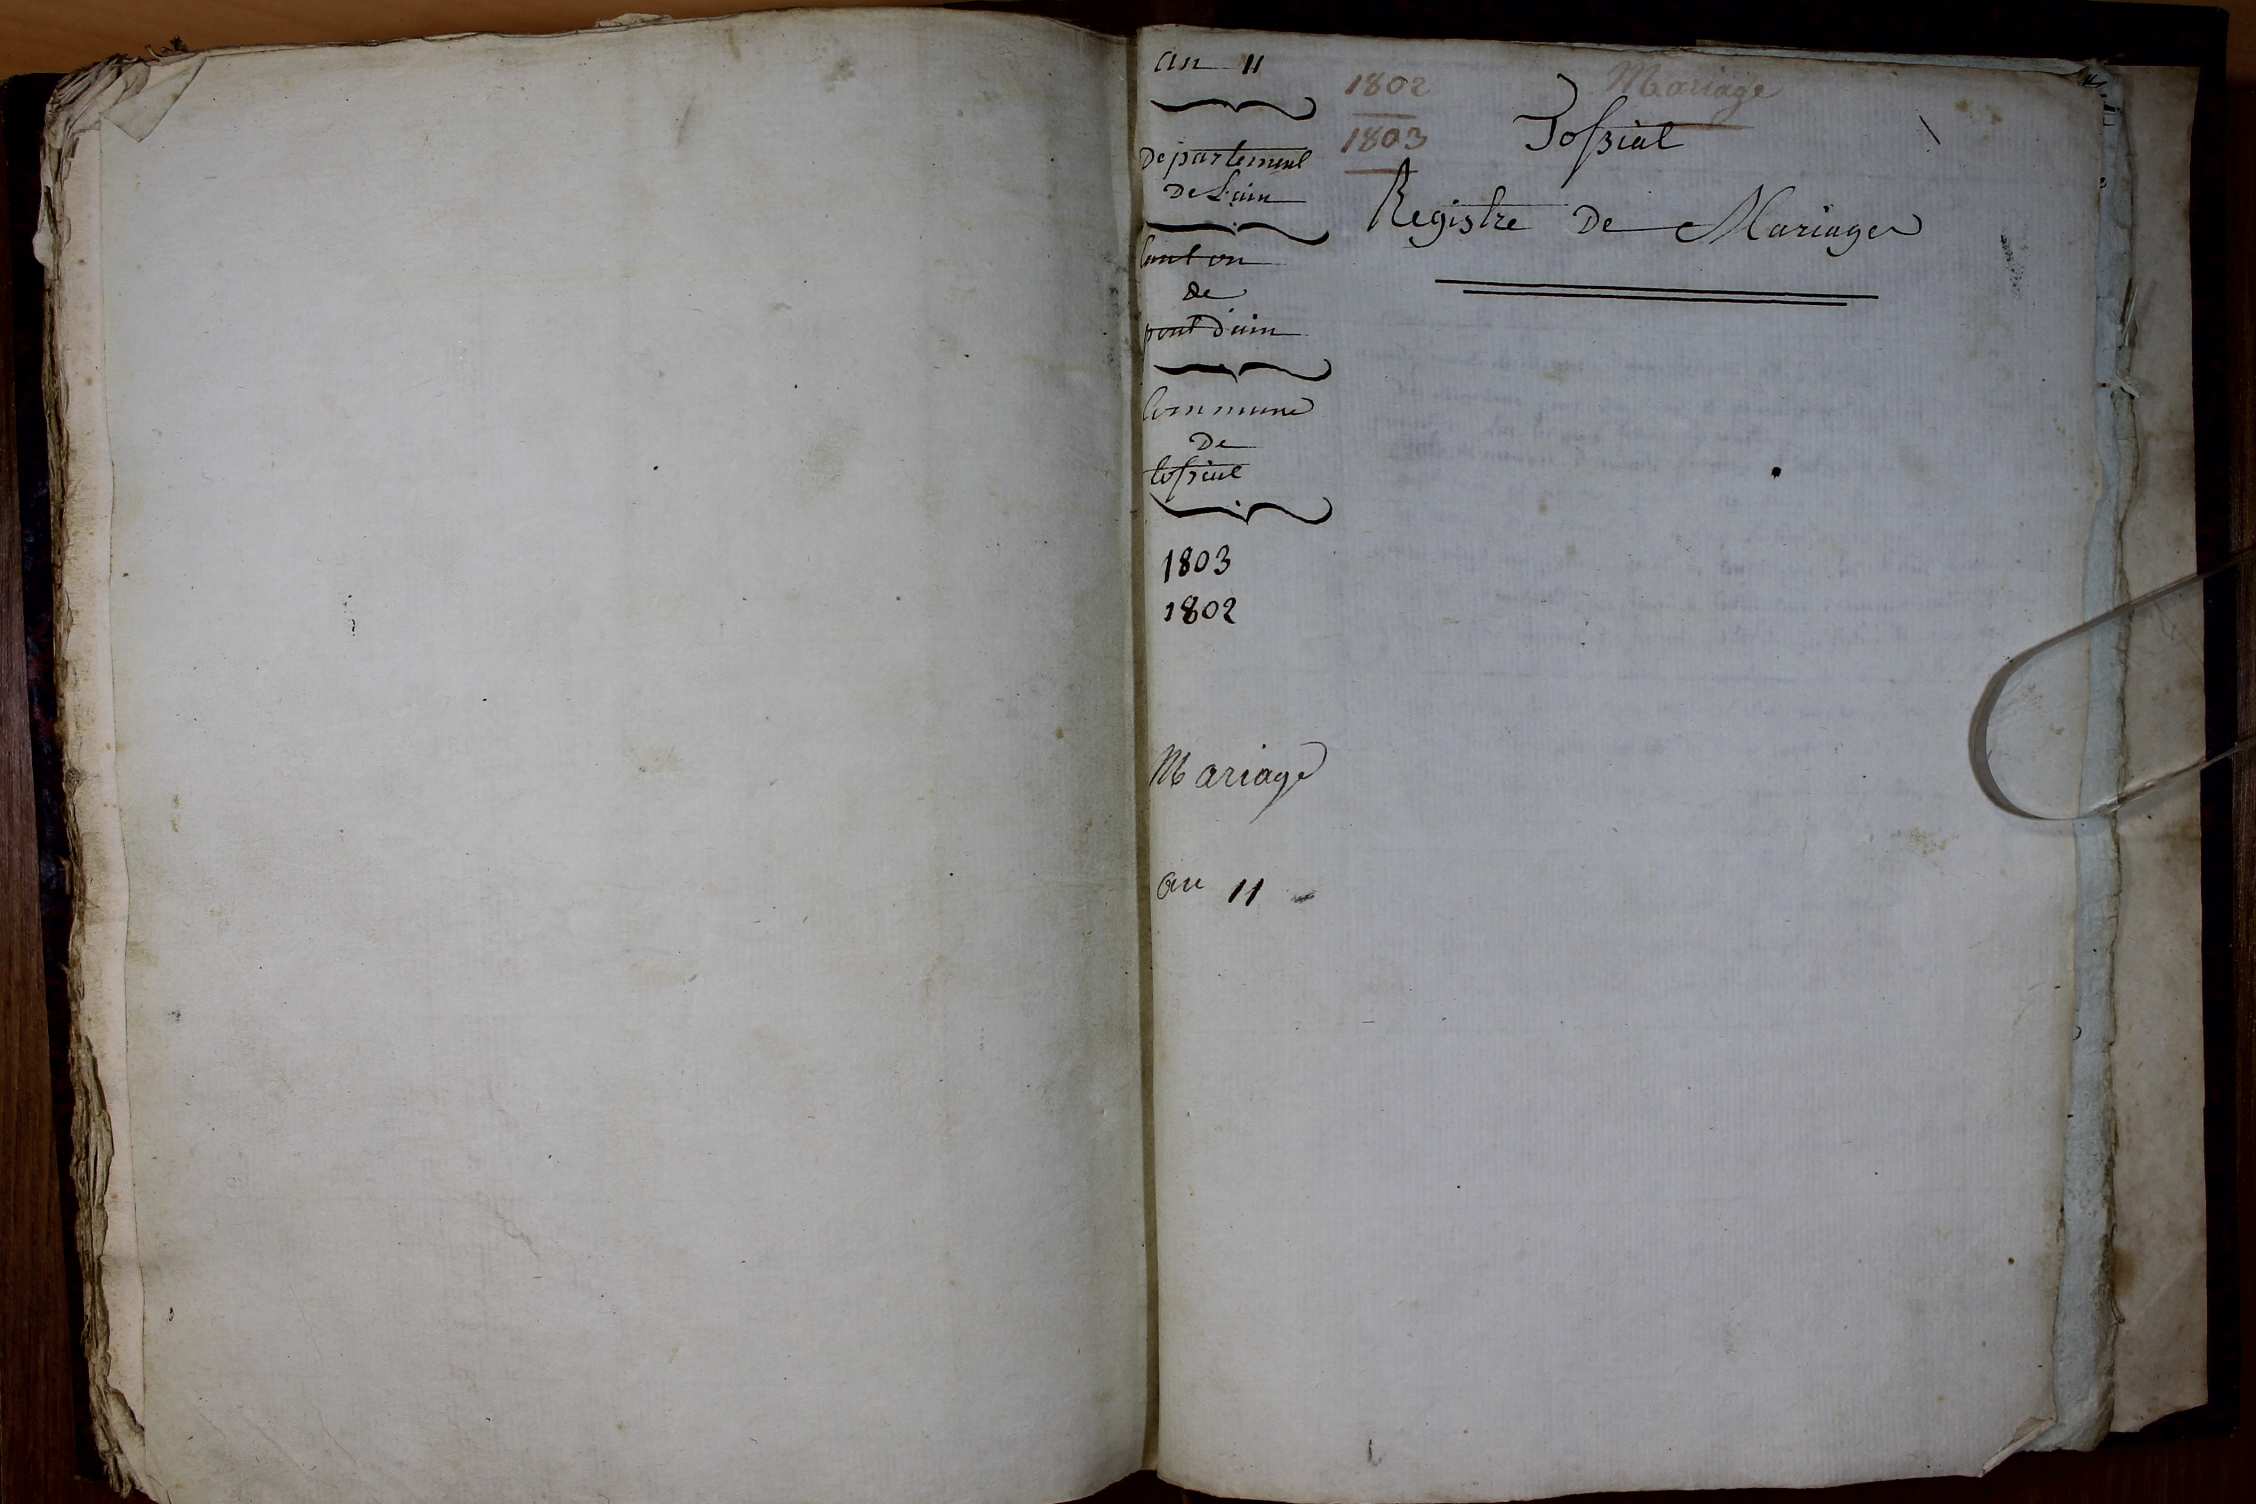 an 11
Departement
De L'ain
Canton
de
pont d'ain
Commune
De
tossiat
1803
1802
Mariage
an 11
1802
1803
Mariage
Tossiat
Registre De Mariages